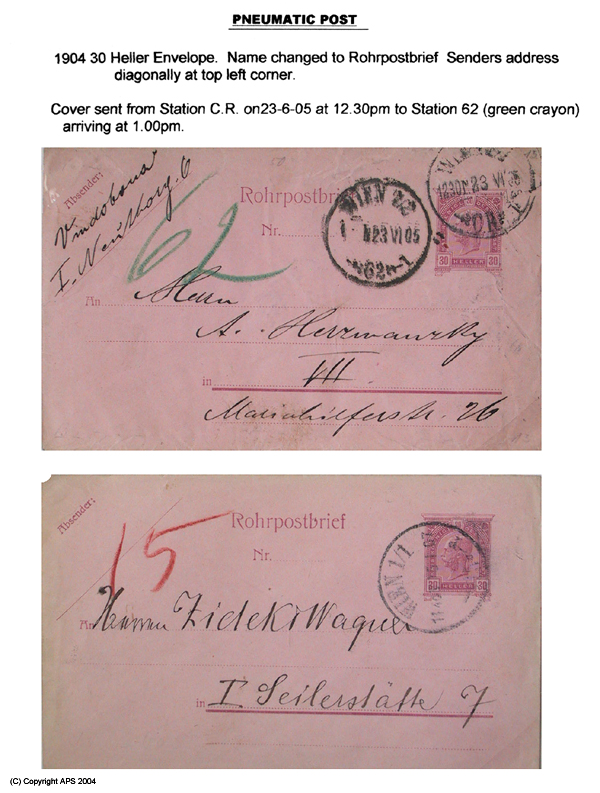 PNEUMATIC POST
1904 30 Heller Envelope. Name changed to Rohrpostbrief Senders address
diagonally at top left corner.
Cover sent from Station C.R. on23-6-05 at 12.30pm to Station 62 (green crayon)
arriving at 1.00pm.
Absender:
Vindobona
I. Neuthorg. 6
62
Rohrpostbrief
Nr.
WIEN
23 VI 05
62
WIEN
23 VI 05
30 HELLER 30
An
Herrn
A. Herzmansky
in VII.
Mariahilferstr. 26
Absender:
15
Rohrpostbrief
Nr.
WIEN 1/1
30 HELLER 30
An Herren Zidek & Wagner
in I Seilerstätte 7
(C) Copyright APS 2004